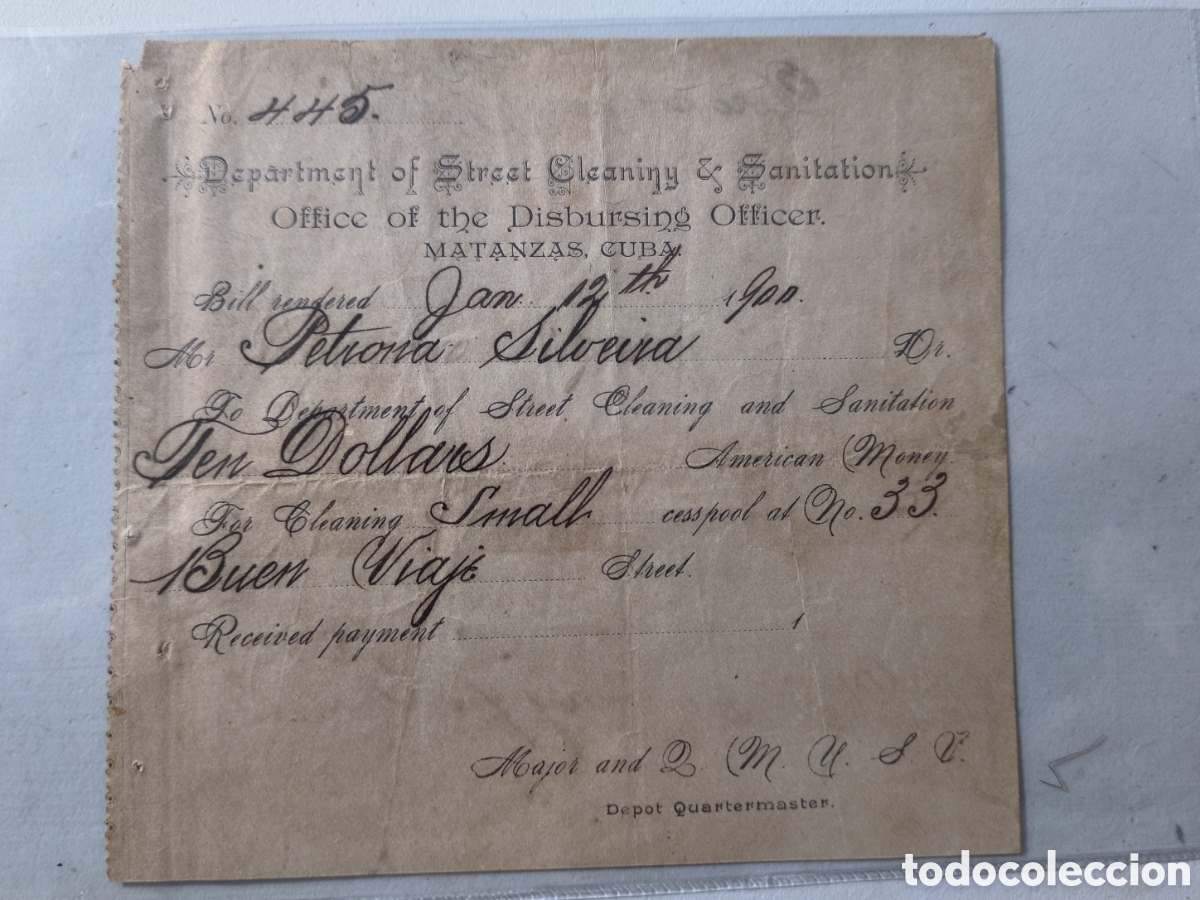 No. 445.
Department of Street Cleaniny & Sanitation
Office of the Disbursing Officer.
MATANZAS, CUBA.
Bill rendered Jan. 12th 1900.
Mr Petrona Silveira Dr.
To Department of Street Cleaning and Sanitation
Ten Dollars American Money
For Cleaning Small cesspool at No. 33.
Buen Viaje Street.
Received payment 1
Major and Q. M. U. S. V.
Depot Quartermaster.
todocoleccion